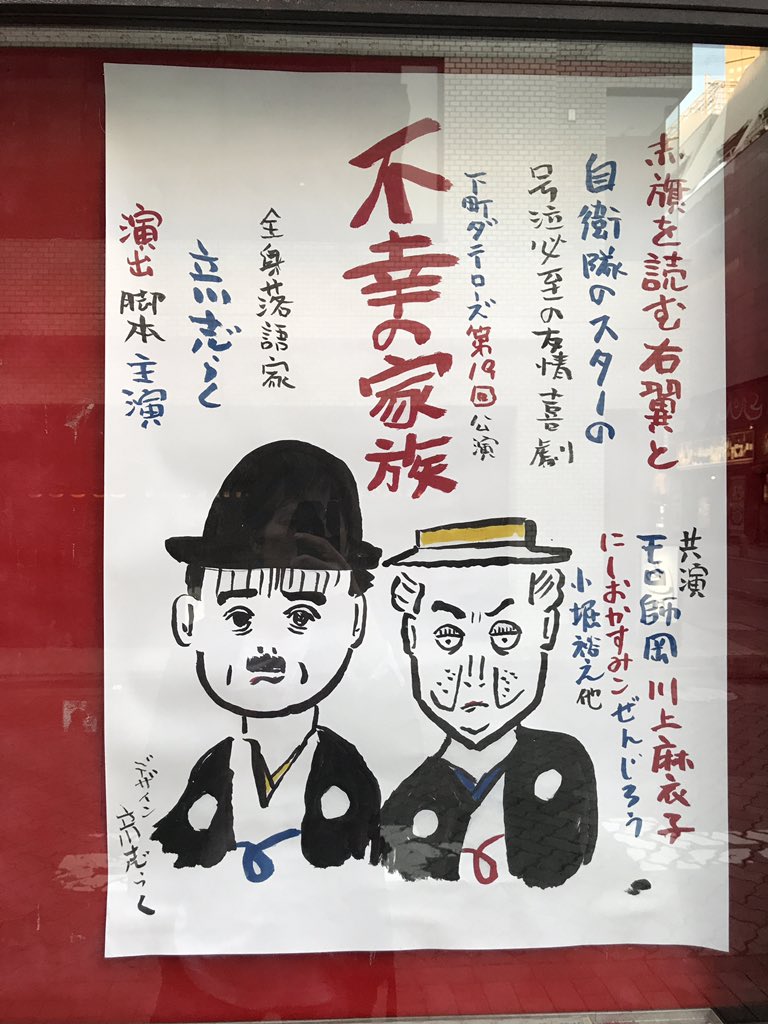 赤旗を読む右翼と
自衛隊のスターの
号泣必至の友情喜劇
下町ダニーローズ第19回公演
不幸の家族
全身落語家
立川志らく
演出 脚本 主演
共演
モロ師岡 川上麻衣子
にしおかすみこ ぜんじろう
小堀裕之 他
デザイン
立川志らく